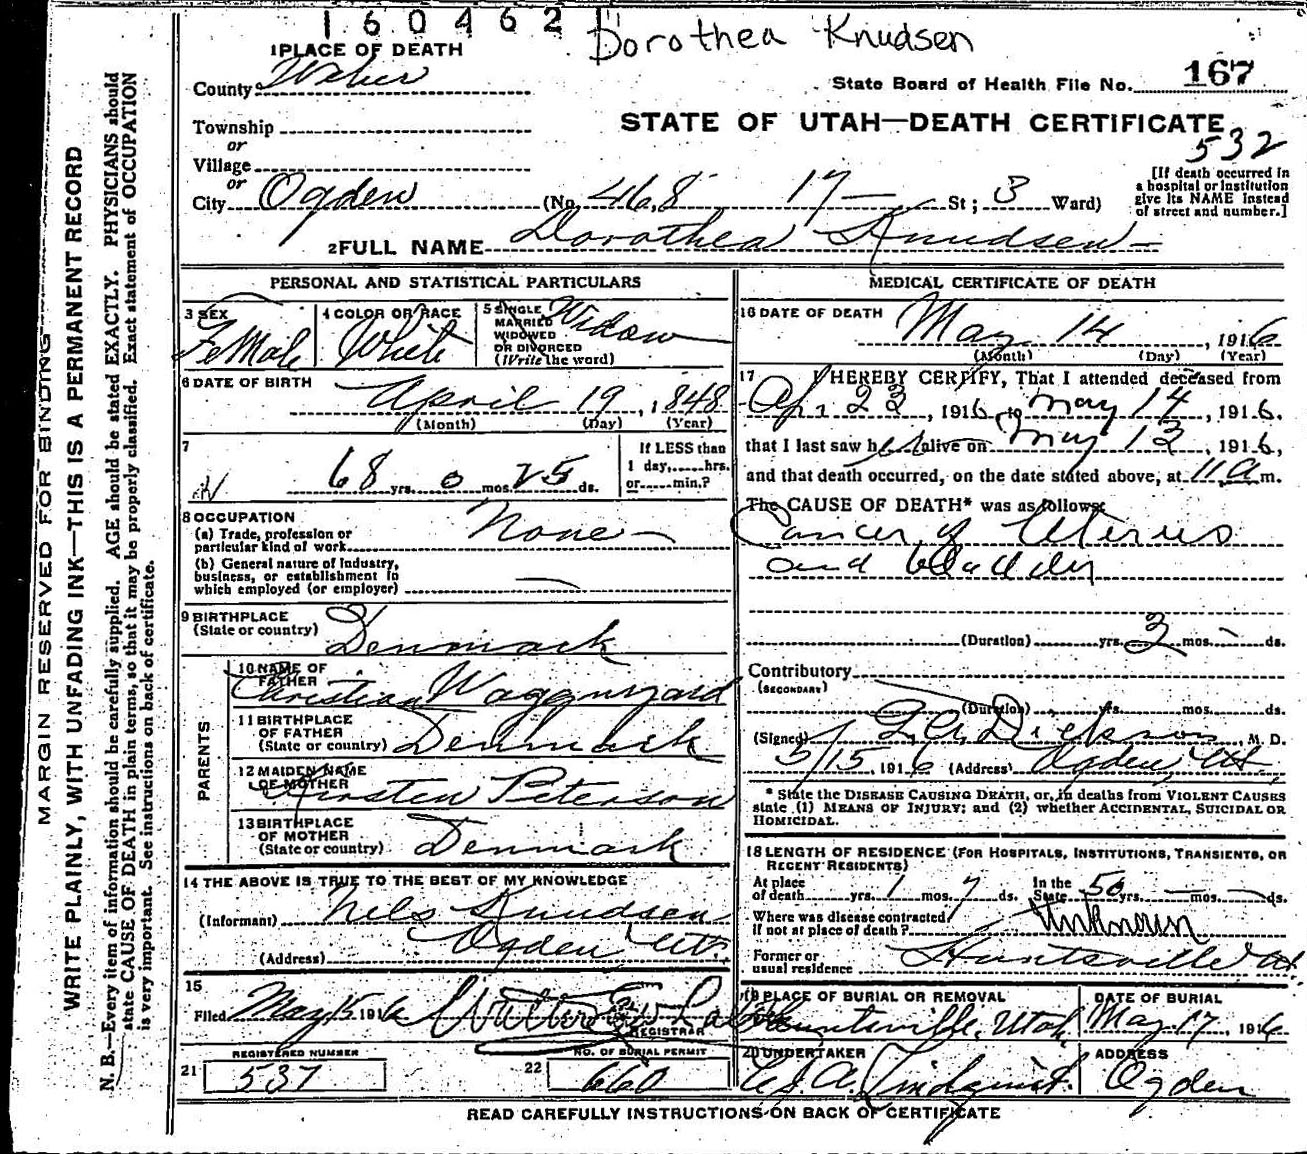 160462
Dorothea Knudsen
1 PLACE OF DEATH
County Weber
State Board of Health File No. 167
Township
or
STATE OF UTAH—DEATH CERTIFICATE
532
Village
or
City Ogden (No. 468 17— St; 3 Ward)
[If death occurred in a hospital or institution give its NAME instead of street and number.]
2 FULL NAME Dorothea Knudsen—
PERSONAL AND STATISTICAL PARTICULARS
3 SEX FeMale
4 COLOR OR RACE White
5 SINGLE MARRIED WIDOWED OR DIVORCED (Write the word) Widow
6 DATE OF BIRTH April 19, 1848
(Month) (Day) (Year)
7 68 yrs. 0 mos. 25 ds.
If LESS than 1 day,......hrs. or......min.?
8 OCCUPATION
(a) Trade, profession or particular kind of work None—
(b) General nature of Industry, business, or establishment in which employed (or employer) —
9 BIRTHPLACE
(State or country) Denmark
PARENTS
10 NAME OF FATHER Christian
11 BIRTHPLACE OF FATHER (State or country) Denmark
12 MAIDEN NAME OF MOTHER Kirsten Peterson
13 BIRTHPLACE OF MOTHER (State or country) Denmark
14 THE ABOVE IS TRUE TO THE BEST OF MY KNOWLEDGE
(Informant) Nels Knudsen
(Address) Ogden Ut.
15
Filed May 15 1916 Walter
REGISTRAR
REGISTERED NUMBER
21 537
NO. OF BURIAL PERMIT
22 660
MEDICAL CERTIFICATE OF DEATH
16 DATE OF DEATH
May 14, 1916
(Month) (Day) (Year)
17 I HEREBY CERTIFY, That I attended deceased from
Ap. 23, 1916, to May 14, 1916.
that I last saw her alive on May 13, 1916,
and that death occurred, on the date stated above, at 11 a m.
The CAUSE OF DEATH* was as follows:
Cancer of Uterus
and bladder
(Duration) yrs. 3 mos. — ds.
Contributory
(SECONDARY)
(Duration) yrs. mos. ds.
(Signed) Dickson, M. D.
5/15, 1916 (Address) Ogden, Ut.
* State the DISEASE CAUSING DEATH, or, in deaths from VIOLENT CAUSES state (1) MEANS OF INJURY; and (2) whether ACCIDENTAL, SUICIDAL OR HOMICIDAL.
18 LENGTH OF RESIDENCE (FOR HOSPITALS, INSTITUTIONS, TRANSIENTS, OR RECENT RESIDENTS)
At place of death yrs. 1 mos. 7 ds. In the State 50 yrs. — mos. — ds.
Where was disease contracted if not at place of death? Unknown
Former or usual residence Huntsville Ut.
19 PLACE OF BURIAL OR REMOVAL Huntsville, Utah.
DATE OF BURIAL May 17, 1916
20 UNDERTAKER Lindquist.
ADDRESS Ogden
READ CAREFULLY INSTRUCTIONS ON BACK OF CERTIFICATE
MARGIN RESERVED FOR BINDING
WRITE PLAINLY, WITH UNFADING INK—THIS IS A PERMANENT RECORD
N. B.—Every item of information should be carefully supplied. AGE should be stated EXACTLY. PHYSICIANS should
state CAUSE OF DEATH in plain terms, so that it may be properly classified. Exact statement of OCCUPATION
is very important. See instructions on back of certificate.